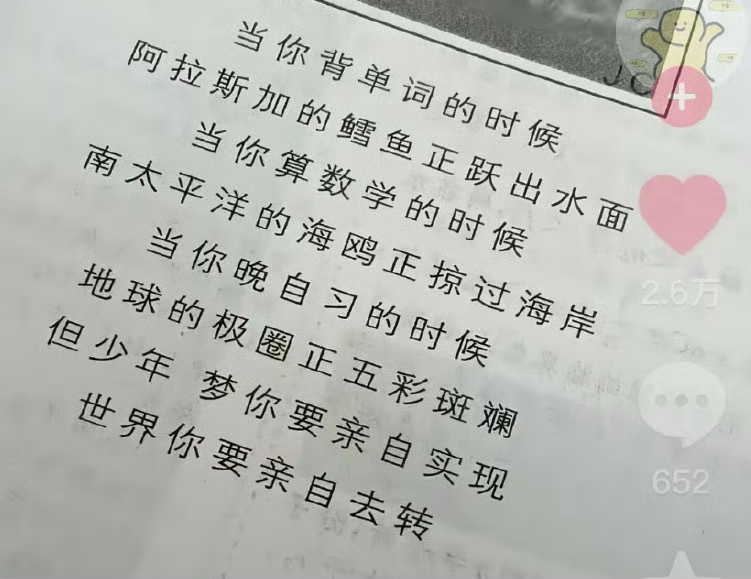 JC
当你背单词的时候
阿拉斯加的鳕鱼正跃出水面
当你算数学的时候
南太平洋的海鸥正掠过海岸
当你晚自习的时候
地球的极圈正五彩斑斓
但少年 梦你要亲自实现
世界你要亲自去转
2.6万
652